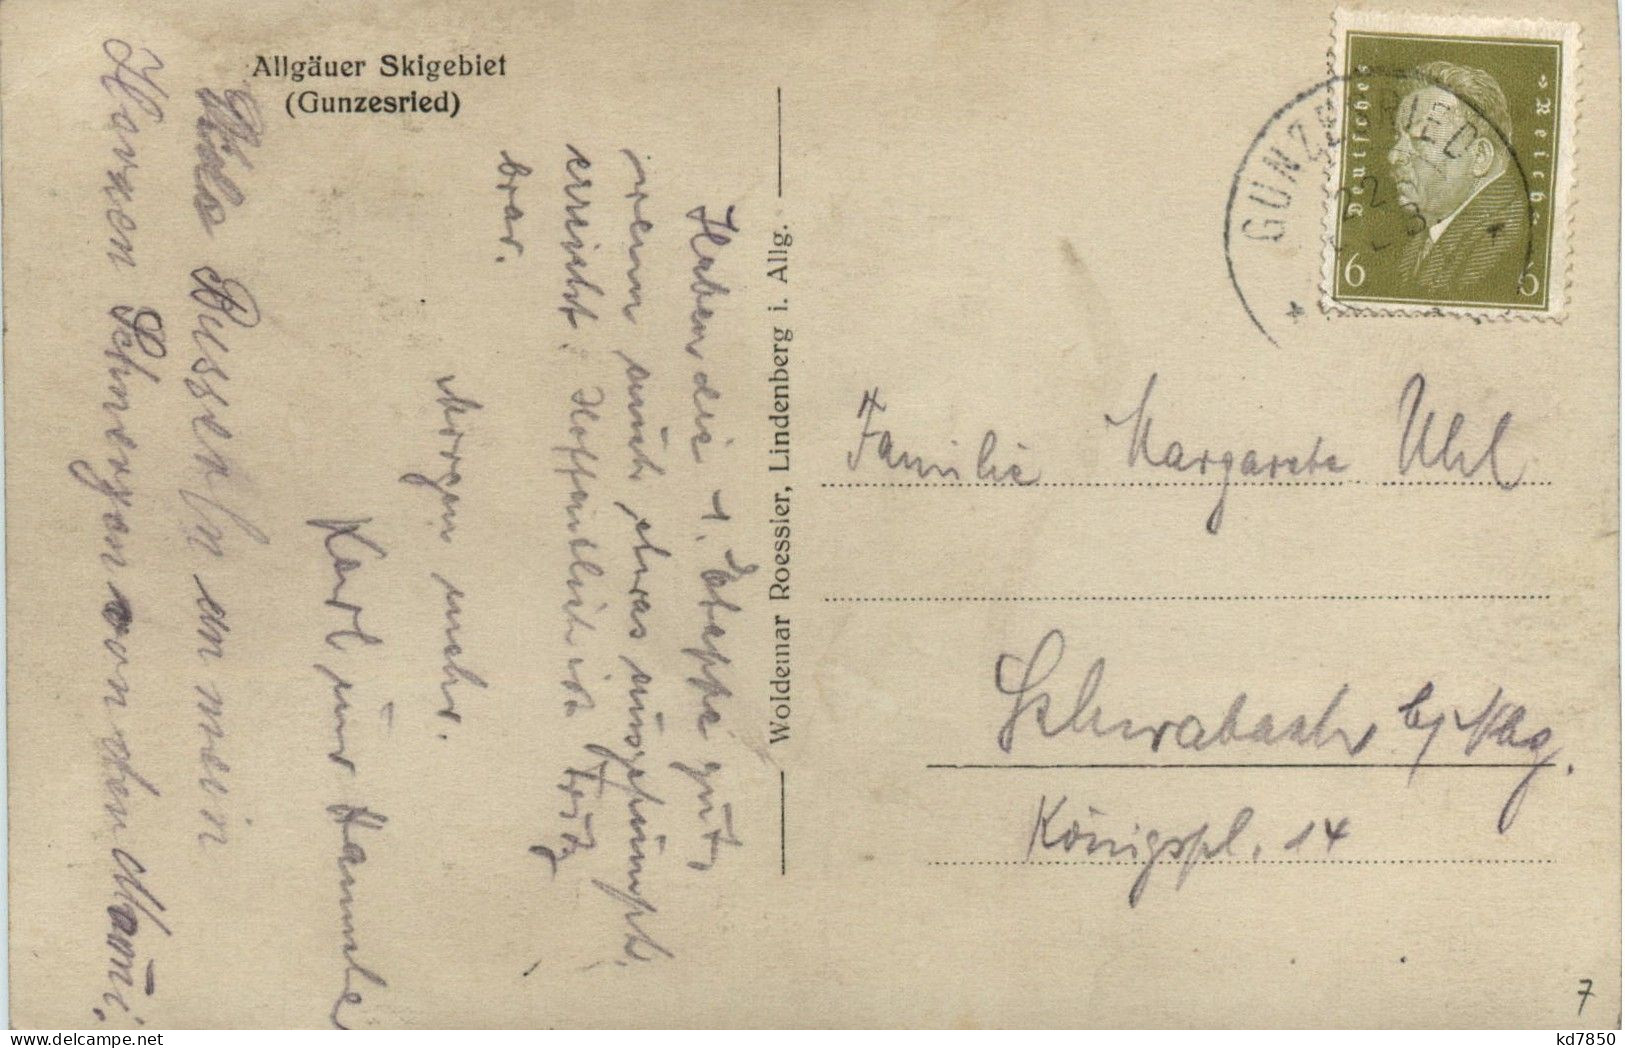 Allgäuer Skigebiet
(Gunzesried)
Haben die 1. Etappe gut,
wenn auch etwas ausgepumpt,
erreicht. Hoffentlich ist Fritz
brav.
Morgen mehr.
Karl und Hannele
Viele Busserln an mein
kleinen Schneegan von den Mami.
Woldemar Roessler, Lindenberg i. Allg.
Deutsches Reich
6 6
GUNZESRIED
22
Familie Margarete Uhl
Schwabach b/ Nbg.
Königspl. 14
7
kd7850